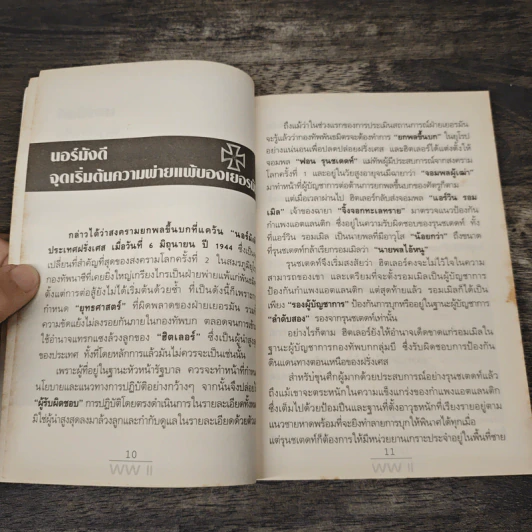 นอร์มังดี
จุดเริ่มต้นความพ่ายแพ้ของเยอรมัน
กล่าวได้ว่าสงครามยกพลขึ้นบกที่แคว้น "นอร์มังดี
ประเทศฝรั่งเศส เมื่อวันที่ 6 มิถุนายน ปี 1944 ซึ่งเป็น
เปลี่ยนที่สำคัญที่สุดของสงครามโลกครั้งที่ 2 ในสมรภูมิยุโรป
กองทัพนาซีที่เคยยิ่งใหญ่เกรียงไกรเป็นฝ่ายพ่ายแพ้แก่พันธมิตร
ตั้งแต่การต่อสู้ยังไม่ได้เริ่มต้นด้วยซ้ำ ที่เป็นดังนี้ก็เพราะการ
กำหนด "ยุทธศาสตร์" ที่ผิดพลาดของฝ่ายเยอรมัน รวมถึง
ความขัดแย้งไม่ลงรอยกันภายในกองทัพบก ตลอดจนการเข้า
ใช้อำนาจแทรกแซงล้วงลูกของ "ฮิตเลอร์" ซึ่งเป็นผู้นำสูงสุด
ของประเทศ ทั้งที่โดยหลักการแล้วมันไม่ควรจะเป็นเช่นนั้น
เพราะผู้ที่อยู่ในฐานะหัวหน้ารัฐบาล ควรจะทำหน้าที่กำหนด
นโยบายและแนวทางการปฏิบัติอย่างกว้างๆ จากนั้นจึงปล่อยให้
"ผู้รับผิดชอบ" การปฏิบัติโดยตรงดำเนินการในรายละเอียดทั้งหมด
มิใช่ผู้นำสูงสุดลงมาล้วงลูกและกำกับดูแลในรายละเอียดด้วยตัวเอง
10
WW II
ถึงแม้ว่าในช่วงแรกของการประเมินสถานการณ์ฝ่ายเยอรมัน
จะรู้แล้วว่ากองทัพพันธมิตรจะต้องทำการ "ยกพลขึ้นบก" ในยุโรป
อย่างแน่นอนเพื่อปลดปล่อยฝรั่งเศส และฮิตเลอร์ได้แต่งตั้งให้
จอมพล "ฟอน รุนชเตดท์" แม่ทัพผู้มีประสบการณ์จากสงคราม
โลกครั้งที่ 1 และอยู่ในวัยสูงอายุจนมีฉายาว่า "จอมพลผู้เฒ่า"
มาทำหน้าที่ผู้บัญชาการต่อต้านการยกพลขึ้นบกของศัตรูก็ตาม
แต่เมื่อเวลาผ่านไป ฮิตเลอร์กลับส่งจอมพล "แอร์วิน รอม
เมิล" เจ้าของฉายา "จิ้งจอกทะเลทราย" มาตรวจแนวป้องกัน
กำแพงแอตแลนติก ซึ่งอยู่ในความรับผิดชอบของรุนชเตดท์ ทั้ง
ที่แอร์วิน รอมเมิล เป็นนายพลที่มีอาวุโส "น้อยกว่า" ถึงขนาด
ที่รุนชเตดท์กล้าเรียกรอมเมิลว่า "นายพลไอ้หนู"
รุนชเตดท์จึงเริ่มสงสัยว่า ฮิตเลอร์คงจะไม่ไว้ใจในความ
สามารถของเขา และเตรียมที่จะตั้งรอมเมิลเป็นผู้บัญชาการป้องกัน
กำแพงแอตแลนติกแทนเขา แต่สุดท้ายแล้ว รอมเมิลก็ได้เป็น
เพียง "รองผู้บัญชาการ" ป้องกันการบุกหรืออยู่ในฐานะผู้บัญชาการ
"ลำดับสอง" รองจากรุนชเตดท์เท่านั้น
อย่างไรก็ตาม ฮิตเลอร์ยังให้อำนาจเด็ดขาดแก่รอมเมิลใน
ฐานะผู้บัญชาการกองทัพบกกลุ่มบี ซึ่งรับผิดชอบการป้องกัน
ดินแดนทางตอนเหนือของฝรั่งเศส
สำหรับขุนศึกผู้มากด้วยประสบการณ์อย่างรุนชเตดท์แล้ว
ถึงแม้เขาจะตระหนักในความแข็งแกร่งของกำแพงแอตแลนติก
ซึ่งเต็มไปด้วยป้อมปืนและฐานที่ตั้งอาวุธหนักที่เรียงรายอยู่ตาม
แนวชายหาดพร้อมที่จะยิงทำลายการบุกให้พินาศได้ทุกเมื่อ
แต่รุนชเตดท์ก็ต้องการให้มีหน่วยยานเกราะประจำอยู่ในพื้นที่ชาย
11
WW II